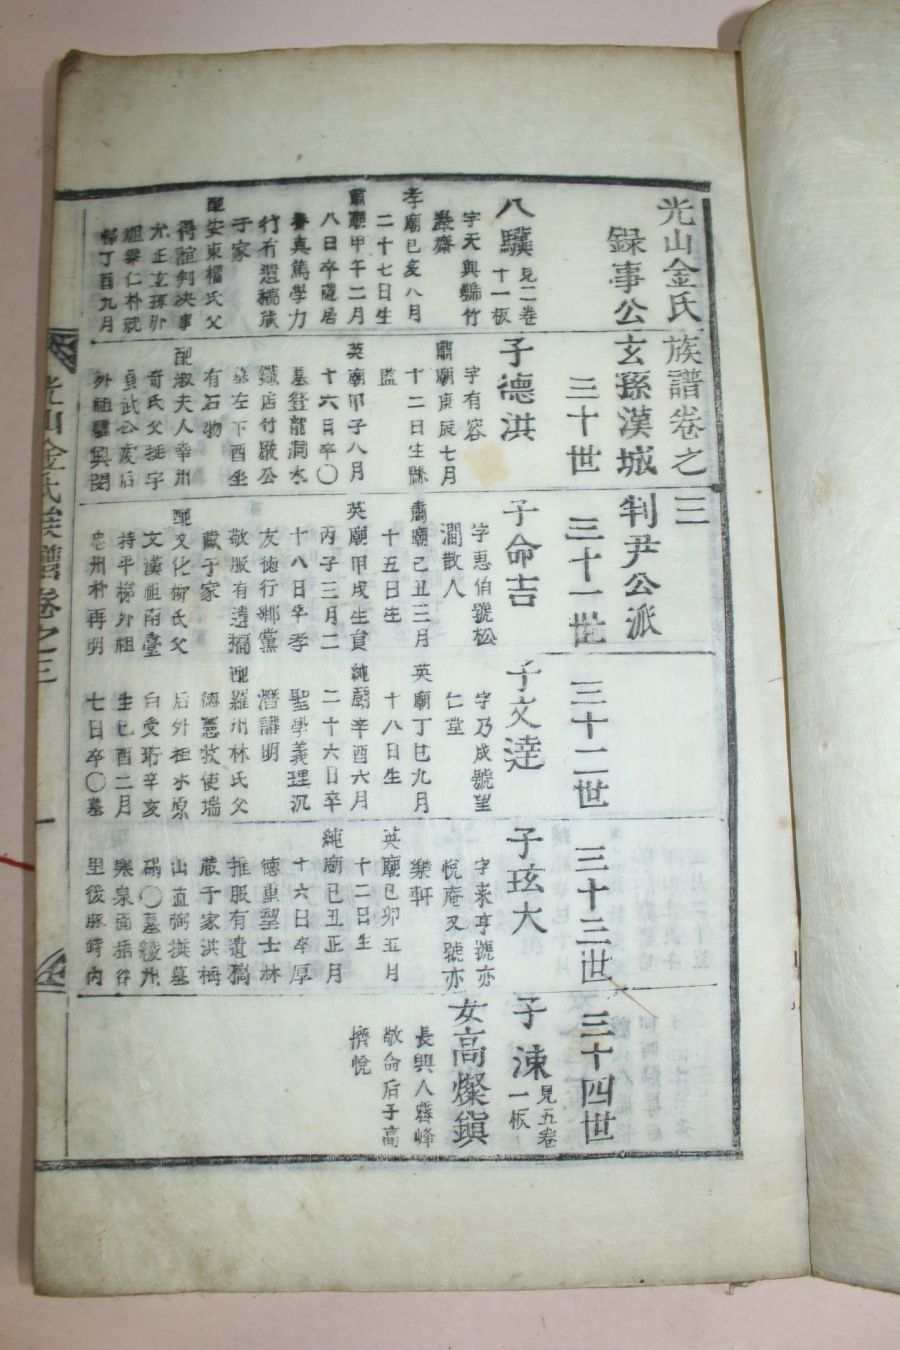 光山金氏族譜卷之三
錄事公玄孫漢城判尹公派
三十世
三十一世
三十二世
三十三世
三十四世
八驥 見二卷十一板
字天與號竹
齋
孝廟己亥八月
二十七日生
肅廟甲午二月
八日卒隱居
養真篤學力
行有遺稿藏
于家
配安東權氏父
得誼判決事
允正玄孫外
祖
丁酉九月
子德洪
字有容
肅廟庚辰七月
十二日生縣
監
英廟甲子八月
十六日卒〇
墓登龍洞水
鐵店竹廠公
墓左下酉坐
有石物
配淑夫人幸州
奇氏父挺宇
貞武公虔后
外祖驪興閔
子命吉
字惠伯號松
澗散人
肅廟己丑三月
十五日生
英廟甲戌生員
丙子三月二
十八日卒孝
友德行鄉黨
敬服有遺稿
藏于家
配文化柳氏父
文漢祖南臺
持平梯外祖
忠州朴再明
子文逵
字乃成號望
仁堂
英廟丁巳九月
十八日生
純廟辛酉六月
二十六日卒
聖學義理沉
潛講明
配羅州林氏父
德憲牧使㙐
后外祖水原
白受珩辛亥
生己酉二月
七日卒〇墓
子玹大
字泰亨號亦
悅庵又號亦
樂軒
英廟己卯五月
十二日生
純廟己丑正月
十六日卒厚
德重望士林
推服有遺稿
藏于家洪梅
山直弼撰墓
碣〇墓綾州
寒泉面
里後豚峙內
子湅 見五卷一板
女高燦鎭
長興人霽峰
敬命后子高
濟悅
光山金氏族譜卷之三
一